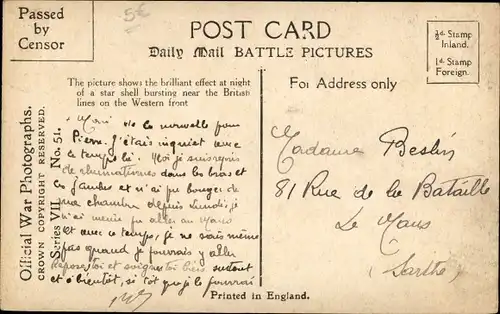 Passed by
Censor
5€
POST CARD
Daily Mail BATTLE PICTURES
½d. Stamp
Inland.
1d. Stamp
Foreign.
The picture shows the brilliant effect at night
of a star shell bursting near the British
lines on the Western front
For Address only
Official War Photographs.
CROWN COPYRIGHT RESERVED.
Series VII. No. 51.
la nouvelle pour
Pierre. J'étais inquiet avec
ce temps là. Moi je suis repris
de rhumatismes dans les bras et
les jambes et n'ai pu bouger de
ma chambre depuis Lundi, je
n'ai même pu aller au Mans
et avec ce temps, je ne sais même
pas quand je pourrais y aller
Repose toi et soigne toi bien surtout
et à bientôt, si tôt que je pourrai
Madame Beslin
81 Rue de la Bataille
Le Mans
(Sarthe)
Printed in England.